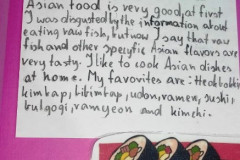 Asian food is very good, at first
I was disgusted by the information about
eating raw fish, but now I say that raw
fish and other specyfic Asian flavors are
very tasty. I like to cook Asian dishes
at home. My favorites are:
kimbap, bibimbap, udon, ramen, sushi,
bulgogi, ramyeon and kimchi.